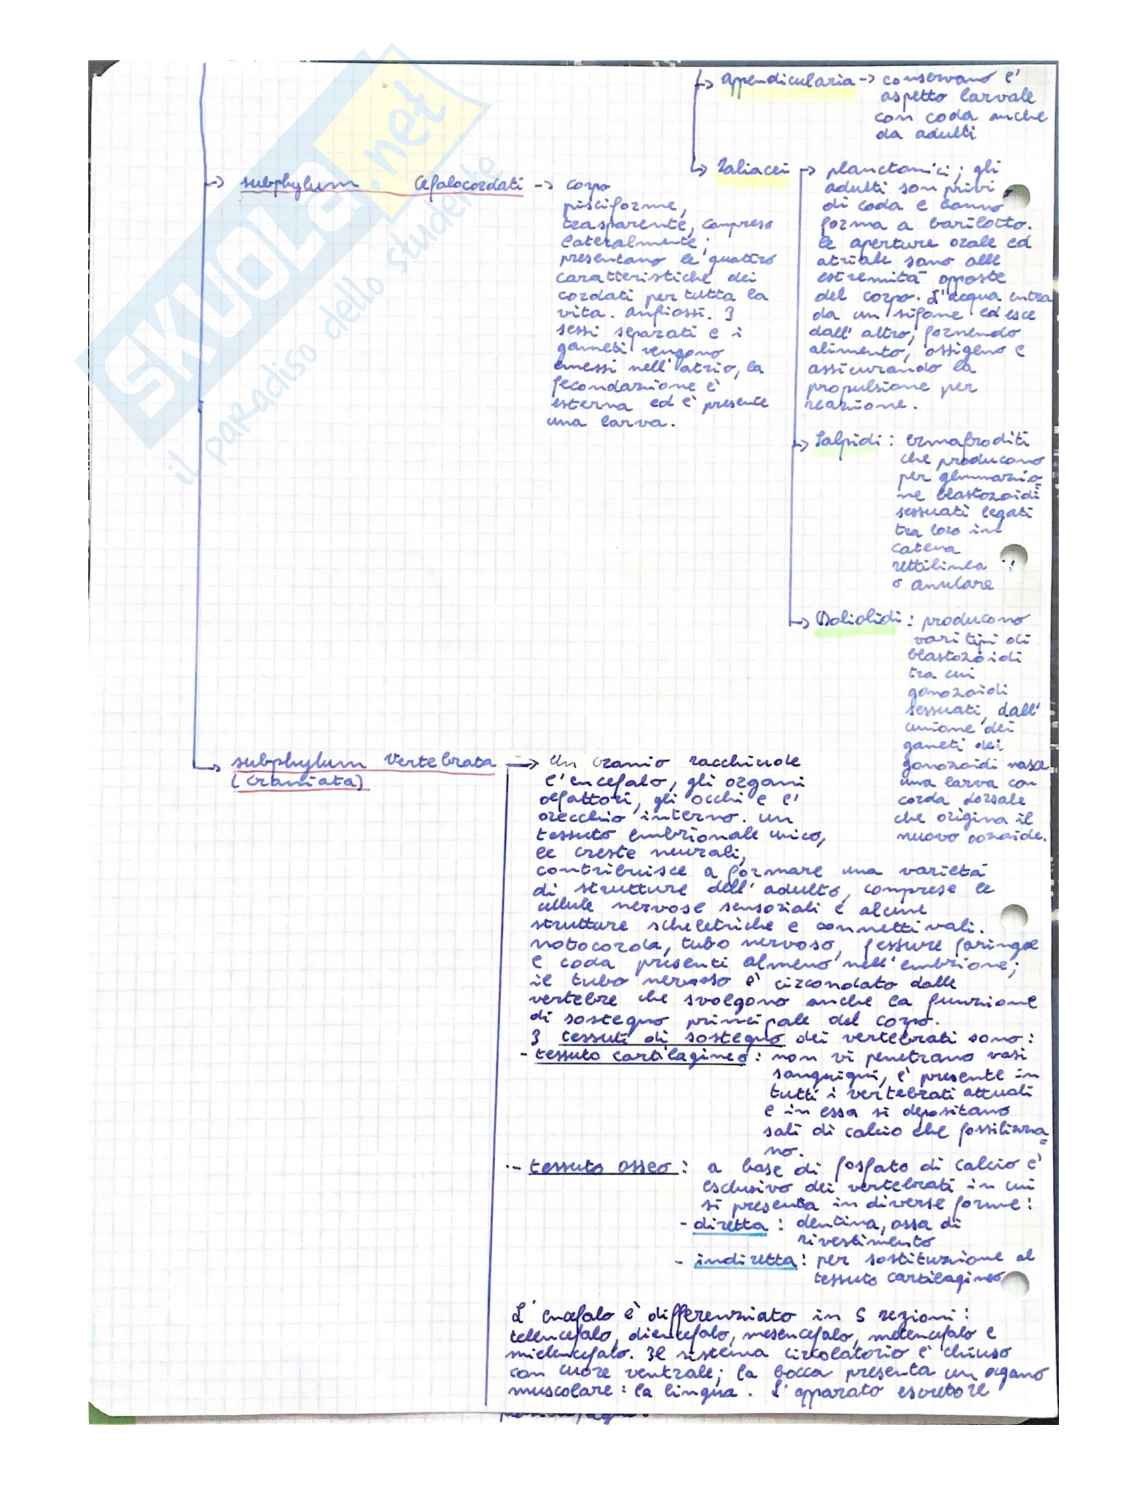 appendicularia -> conservano l'
aspetto larvale
con coda anche
da adulti
Taliacei -> planctonici; gli
adulti son privi
di coda e hanno
forma a barilotto.
le aperture orale ed
atriale sono alle
estremità opposte
del corpo. L'acqua entra
da un sifone ed esce
dall'altro, fornendo
alimento, ossigeno e
assicurando la
propulsione per
reazione.
Salpidi: ermafroditi
che producono
per gemmazio-
ne blastozoidi
sessuati legati
tra loro in
catena
rettilinea
o anulare
Doliolidi: producono
vari tipi di
blastozoidi
tra cui
gonozoidi
sessuati, dall'
unione dei
gameti dei
gonozoidi nasce
una larva con
corda dorsale
che origina il
nuovo oozoide.
subphylum Cefalocordati -> corpo
pisciforme,
trasparente, compresso
lateralmente;
presentano le quattro
caratteristiche dei
cordati per tutta la
vita. anfiossi. I
sessi separati e i
gameti vengono
emessi nell'atrio, la
fecondazione è
esterna ed è presente
una larva.
subphylum Vertebrata -> Un cranio racchiude
(Craniata)
l'encefalo, gli organi
olfattori, gli occhi e l'
orecchio interno. un
tessuto embrionale unico,
le creste neurali,
contribuisce a formare una varietà
di strutture dell'adulto, comprese le
cellule nervose sensoriali e alcune
strutture scheletriche e connettivali.
notocorda, tubo nervoso, fessure faringee
e coda presenti almeno nell'embrione;
il tubo nervoso è circondato dalle
vertebre che svolgono anche la funzione
di sostegno principale del corpo.
I tessuti di sostegno dei vertebrati sono:
- tessuto cartilagineo: non vi penetrano vasi
sanguigni, è presente in
tutti i vertebrati attuali
e in essa si depositano
sali di calcio che fossilizza-
no.
- tessuto osseo: a base di fosfato di calcio è
esclusivo dei vertebrati in cui
si presenta in diverse forme:
- diretta: dentina, ossa di
rivestimento
- indiretta: per sostituzione al
tessuto cartilagineo
L'encefalo è differenziato in 5 regioni:
telencefalo, diencefalo, mesencefalo, metencefalo e
mielencefalo. Il sistema circolatorio è chiuso
con cuore ventrale; la bocca presenta un organo
muscolare: la lingua. L'apparato escretore
SKUOLA.net
il paradiso dello studente